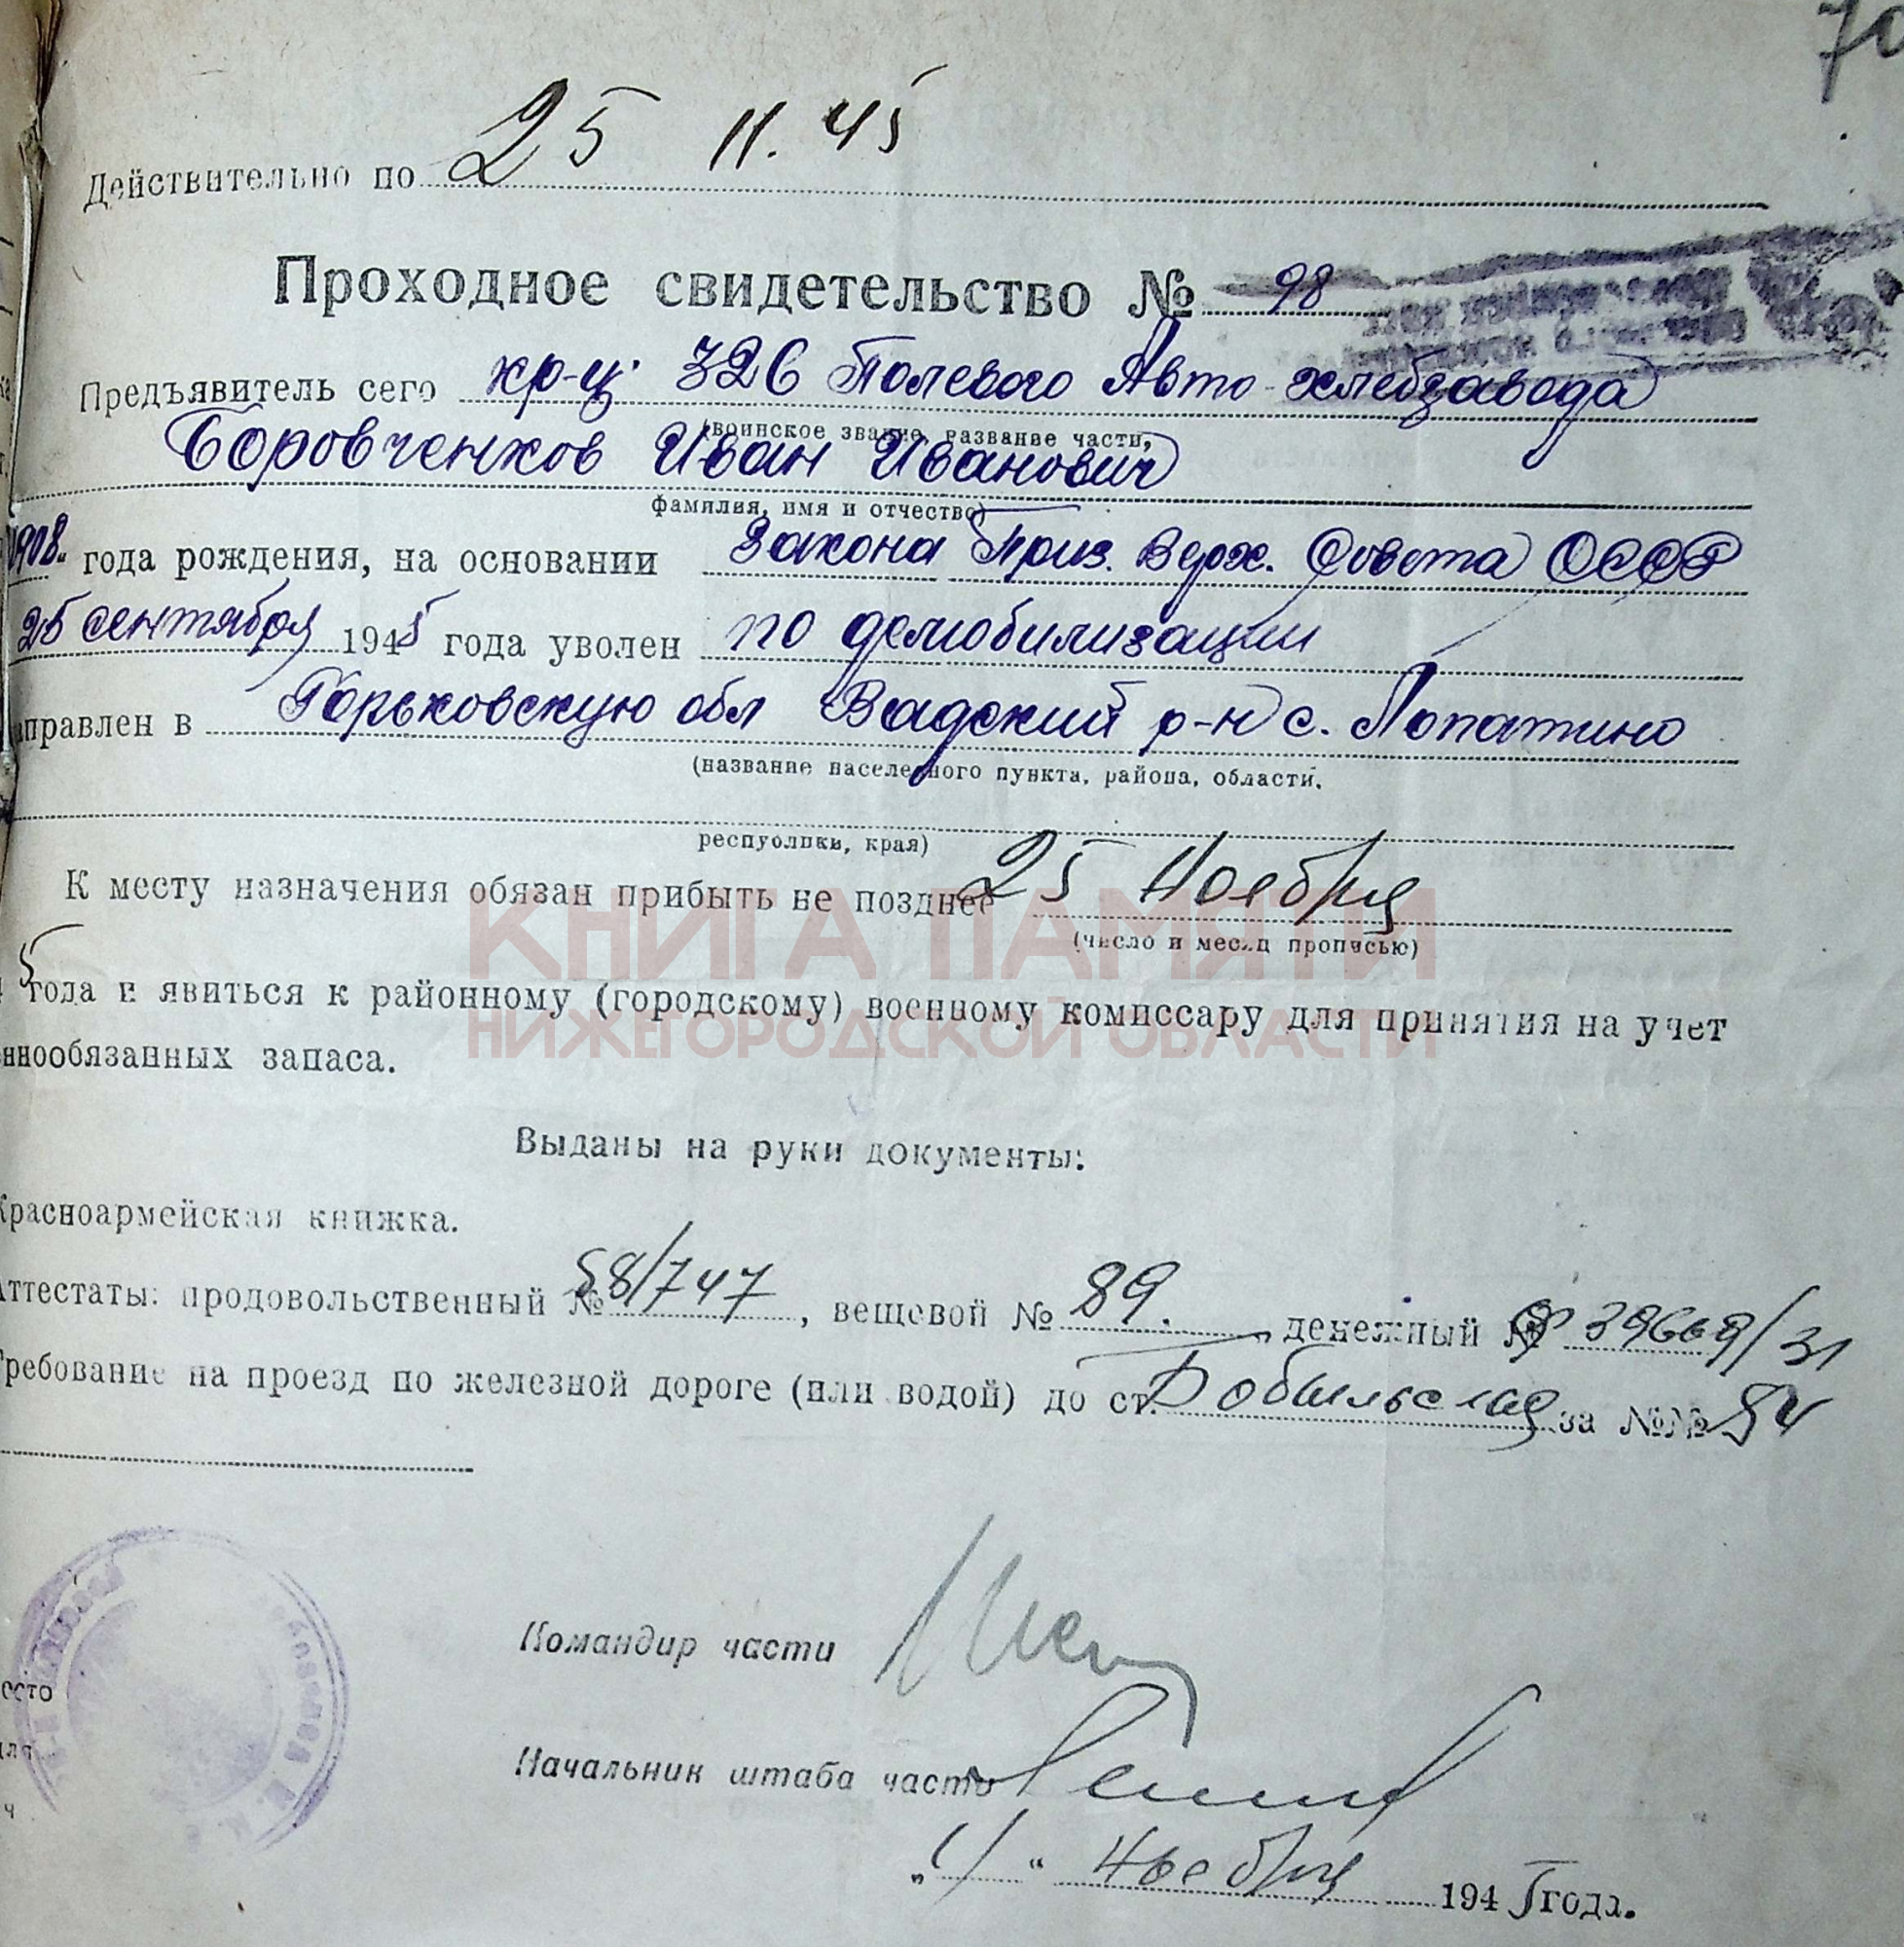 70
Действительно по 25 11. 45
Проходное свидетельство № 98
Предъявитель сего кр-ц. 326 Полевого Авто-хлебзавода
(воинское звание, название части,
Боровченков Иван Иванович
фамилия, имя и отчество)
1908 года рождения, на основании Закона През. Верх. Совета СССР
25 сентября 1945 года уволен по демобилизации
аправлен в Горьковскую обл Вадский р-н с. Лопатино
(название населенного пункта, района, области,
республики, края)
К месту назначения обязан прибыть не позднее 25 Ноября
(число и месяц прописью)
5 года и явиться к районному (городскому) военному комиссару для принятия на учет
еннообязанных запаса.
КНИГА ПАМЯТИ
НИЖЕГОРОДСКОЙ ОБЛАСТИ
Выданы на руки документы:
Красноармейская книжка.
Аттестаты: продовольственный № 58/747, вещевой № 89. денежный №
Требование на проезд по железной дороге (или водой) до ст. за №№ 54
Командир части
Начальник штаба части
" 4 " Ноября 1945 года.